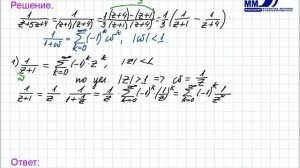 Решение.
ММ
1/(z²+5z+4) = 1/((z+1)(z+4)) = 1/3 ((z+4)-(z+1))/((z+1)(z+4)) = 1/3 (1/(z+1) - 1/(z+4))
1/(1+ω) = ∑_{k=0}^{∞} (-1)^k ω^k, |ω|<1
1) 1/(z+1) = ∑_{k=0}^{∞} (-1)^k z^k, |z|<1
ω
по усл. |z|>1 => ω = 1/z
1/(z+1) = 1/z · 1/(1+1/z) = 1/z ∑_{k=0}^{∞} (-1)^k (1/z)^k = ∑_{k=0}^{∞} (-1)^k
Ответ: